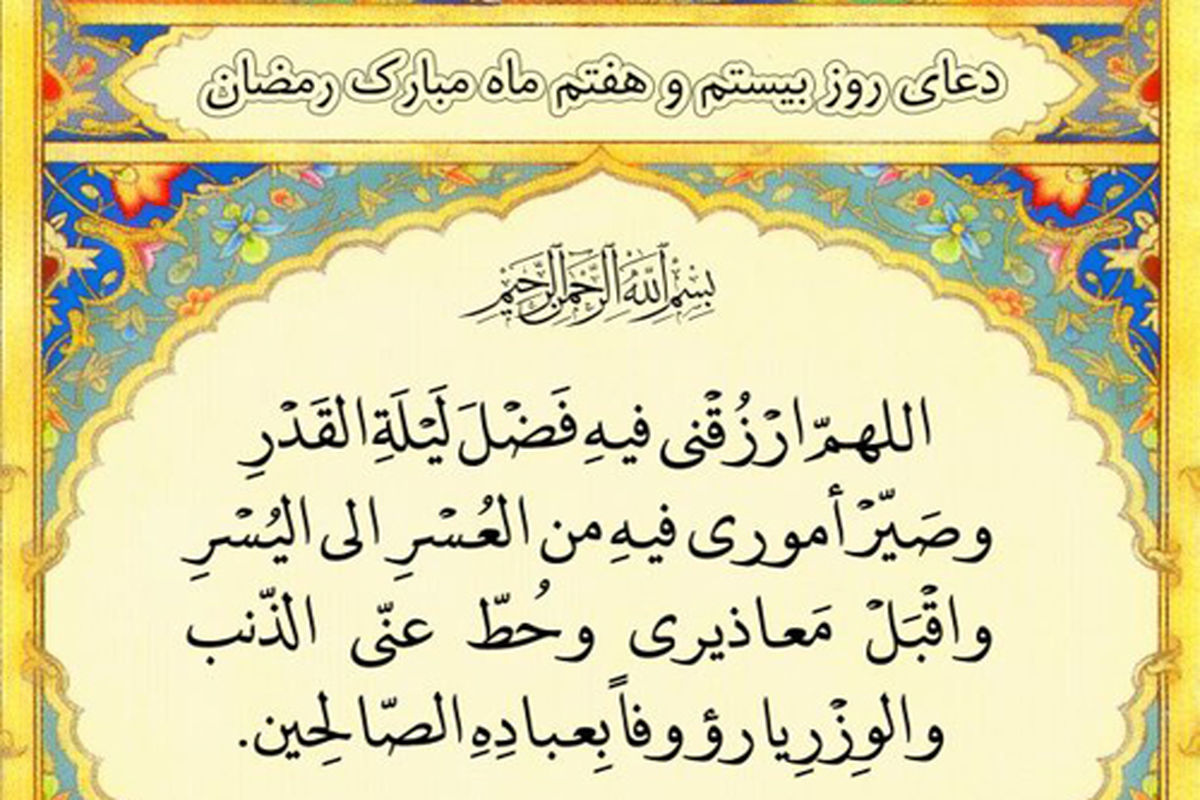 دعای روز بیستم و هفتم ماه مبارک رمضان
بِسْمِ اللّٰهِ الرَّحْمٰنِ الرَّحِيْمِ
اللهمّ ارْزُقْنی فیهِ فَضْلَ لَیْلَةِ القَدْرِ
وصَیّرْ أموری فیهِ من العُسْرِ الی الیُسْرِ
واقْبَلْ مَعاذیری وحُطّ عنّی الذّنب
والوِزْرِ یا رؤوفاً بِعبادِهِ الصّالِحین.